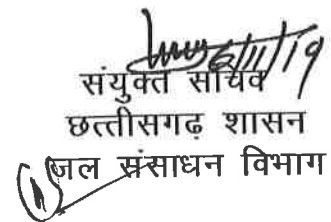 6/11/19
संयुक्त सचिव
छत्तीसगढ़ शासन
जल संसाधन विभाग